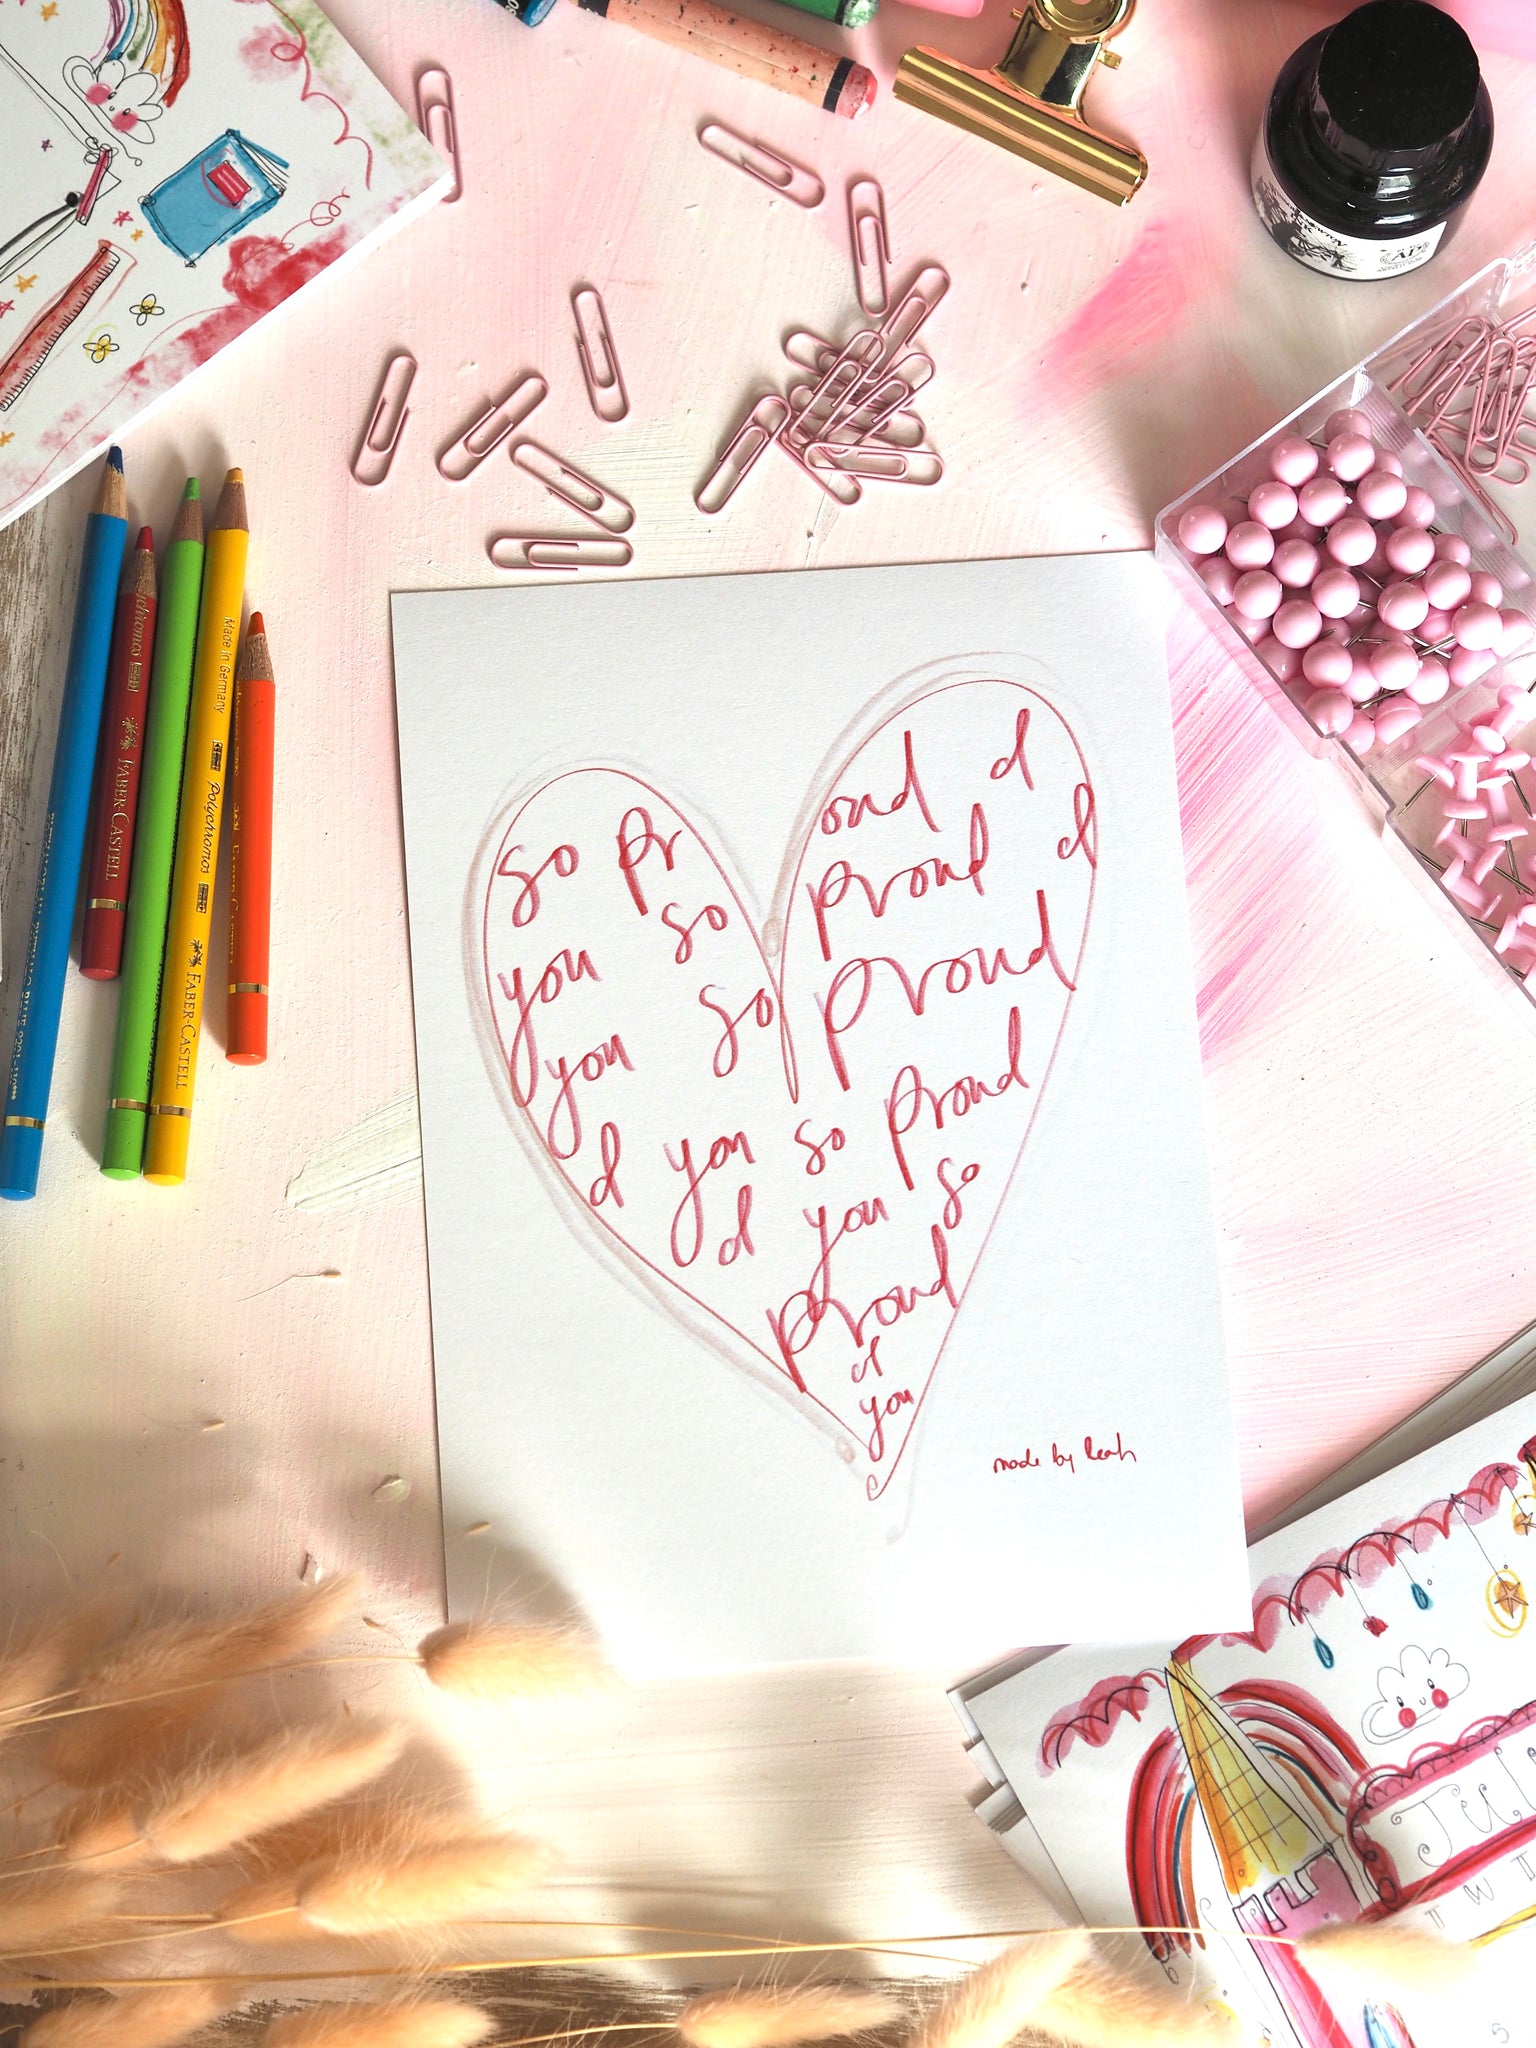 so proud of
you so proud of
you so proud
of you so proud
of you so
proud
of
you
made by leah
FABER-CASTELL
Made in Germany
Polychromos
FABER-CASTELL
NEWTON